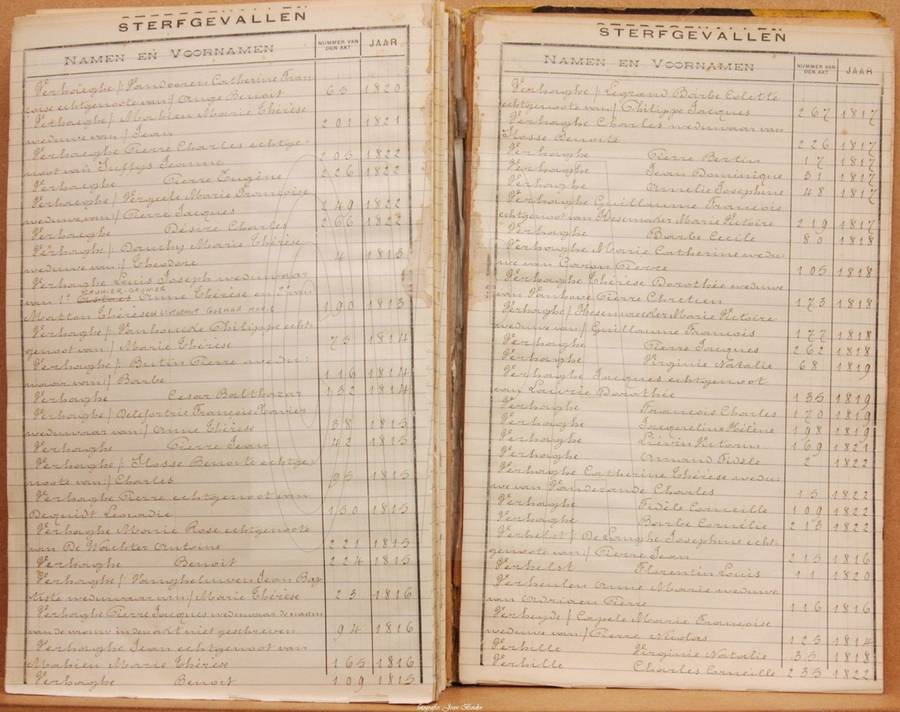 STERFGEVALLEN
NAMEN EN VOORNAMEN NUMMER VAN DEN AKT JAAR
Verhaeghe / Vandooren Catherine Fran
coise echtgenoote van / Ange Benoit 65 1820
Verhaeghe / Mahieu Marie Thérèse
weduwe van / Jean 201 1821
Verhaeghe Pierre Charles echtge-
noot van Jeanne 205 1822
Verhaeghe Pierre Eugène 226 1822
Verhaeghe / Marie Françoise
weduwe van / Pierre Jacques 249 1822
Verhaeghe Désiré Charles 266 1822
Verhaghe / Douchy Marie Thérèse
weduwe van / Theodore 4 1813
Verhaghe Louis Joseph weduwaar
van 1° Anne Thérèse en 2° van
Matton Thérèse 190 1813
Verhaghe / Vanhoucke Philippe echt
genoot van / Marie Thérèse 75 1814
Verhaghe / Butin Pierre wedu-
waar van / Barbe 116 1814
Verhaghe Cesar Balthazar 132 1814
Verhaghe / Delefortrie François Xavier
weduwaar van / Anne Thérèse 38 1815
Verhaghe Pierre Jean 42 1815
Verhaghe / Flosse Benoite echtge-
noote van / Charles 95 1815
Verhaghe Pierre echtgenoot van
Dequidt Leocadie 150 1815
Verhaghe Marie Rose echtgenoote
van De Wachter Antoine 221 1815
Verhaghe Benoit 224 1815
Verhaghe / Vangheluwen Jean Bap
tiste weduwaar van / Marie Thérèse 23 1816
Verhaghe Pierre Jacques weduwaar de naam
van de vrouw in den akt niet geschreven 94 1816
Verhaeghe Jean echtgenoot van
Mahieu Marie Thérèse 165 1816
Verhaghe Benoit 109 1815
STERFGEVALLEN
NAMEN EN VOORNAMEN NUMMER VAN DEN AKT JAAR
Verhaghe / Legrand Barbe Colette
echtgenoote van / Philippe Jacques 267 1817
Verhaghe Charles weduwaar van
Flosse Benoite 226 1817
Verhaghe Pierre Bertin 17 1817
Verhaghe Jean Dominique 31 1817
Verhaghe Amelie Josephine 48 1817
Verhaghe Guillaume François
echtgenoot van Marie Victoire 219 1817
Verhaghe Barbe Cecile 80 1818
Verhaeghe Marie Catherine wedu
we van Caron Pierre 105 1818
Verhaghe Thérèse Dorothée weduwe
van Vanhove Pierre Chretien 173 1818
Verhaghe / Marie Victoire
weduwe van / Guillaume François 177 1818
Verhaghe Pierre Jacques 262 1818
Verhaghe Virginie Natalie 68 1819
Verhaghe Jacques echtgenoot
van Dorothée 135 1819
Verhaghe François Charles 170 1819
Verhaghe Jacqueline Hélène 198 1819
Verhaghe Lievin Victorin 169 1821
Verhaghe Armand Fidèle 2 1822
Verhaghe Catherine Thérèse wedu
we van Charles 15 1822
Verhaghe Fidèle Corneille 109 1822
Verhaghe Barbe Cornélie 213 1822
Verhelst / Delonghe Josephine echt
genoote van / Pierre Jean 215 1816
Verhelst Florentin Louis 11 1820
Verheulen Anne Marie weduwe
van Adriaen Pierre 116 1816
Verheyde / Capele Marie Françoise
weduwe van / Pierre Nicolas 123 1814
Verhille Virginie Natalie 35 1818
Verhille Charles Corneille 235 1822